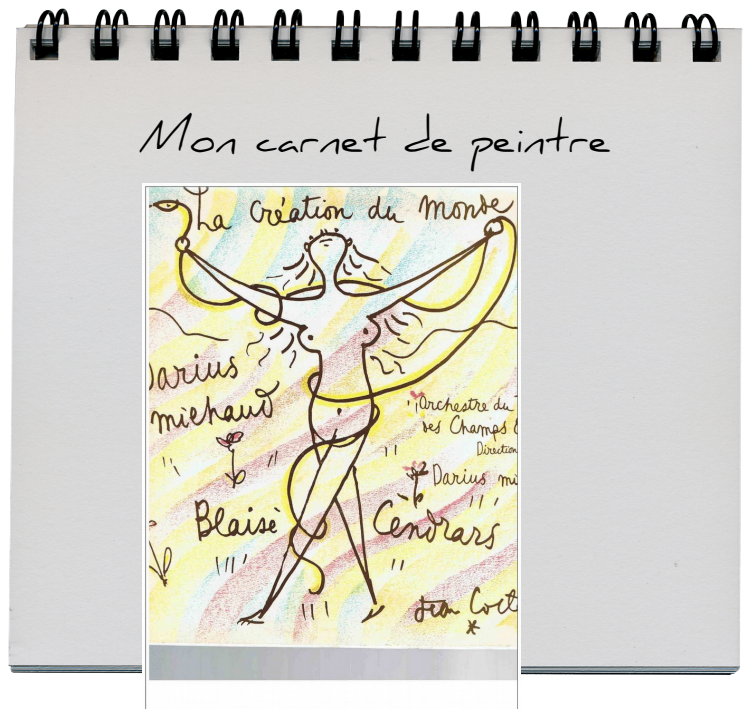 Mon carnet de peintre
La création du monde
Darius
milhaud
Orchestre du
des Champs
Direction
Darius mi
Blaise
Cendrars
Jean Coct